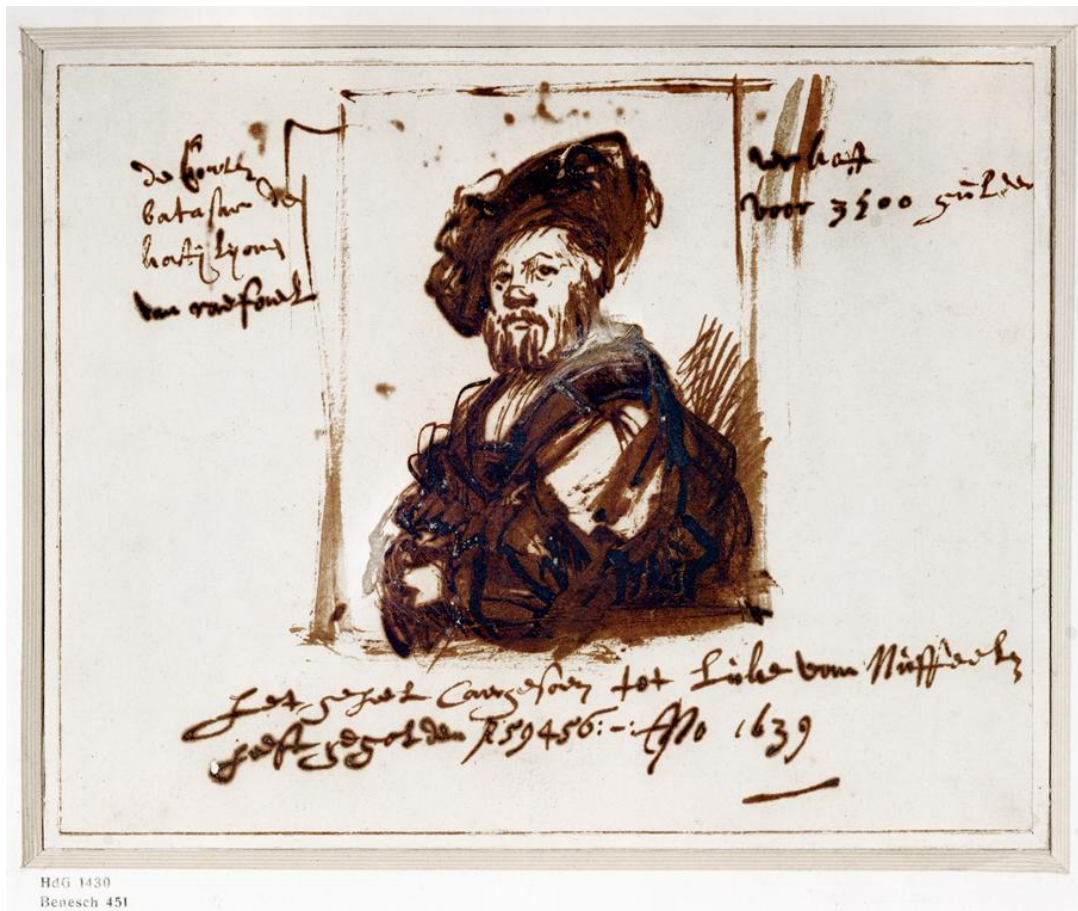 de Conte
batasar de
kastijlyone
van raefael
verkoft
voor 3500 gulden
het geheel Caergesoen tot Luke van Nuffeelen
heeft gegolden f 59456:-: Ano 1639
HdG 1430
Benesch 451